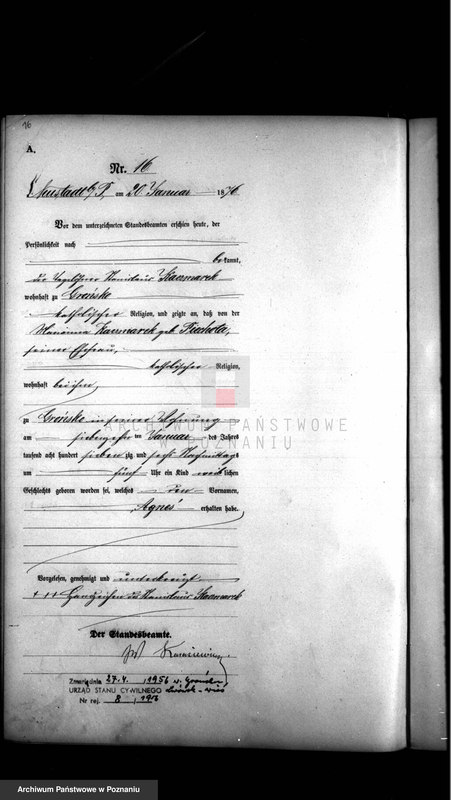 16
A.
Nr. 16
Neustadt b/P, am 20 Januar 1876.
Vor dem unterzeichneten Standesbeamten erschien heute, der
Persönlichkeit nach
bekannt,
der Tagelöhner Stanislaus Kacmarek
wohnhaft zu Grońsko
katholischer Religion, und zeigte an, daß von der
Marianna Kacmarek geb.
seiner Ehefrau,
katholischer Religion,
wohnhaft bei ihm,
zu Grońsko in seiner Wohnung
am siebzehnten Januar des Jahres
tausend acht hundert siebenzig und sechs Nachmittags
um fünf Uhr ein Kind weiblichen
Geschlechts geboren worden sei, welches den Vornamen,
Agnes erhalten habe.
ARCHIWUM PAŃSTWOWE
W POZNANIU
Vorgelesen, genehmigt und unterkreuzt
+++ Handzeichen des Stanislaus Kacmarek
Der Standesbeamte.
Zmarł/ła dnia 27.4. 1956 w
URZĄD STANU CYWILNEGO
Nr rej. 8, 1956
Archiwum Państwowe w Poznaniu